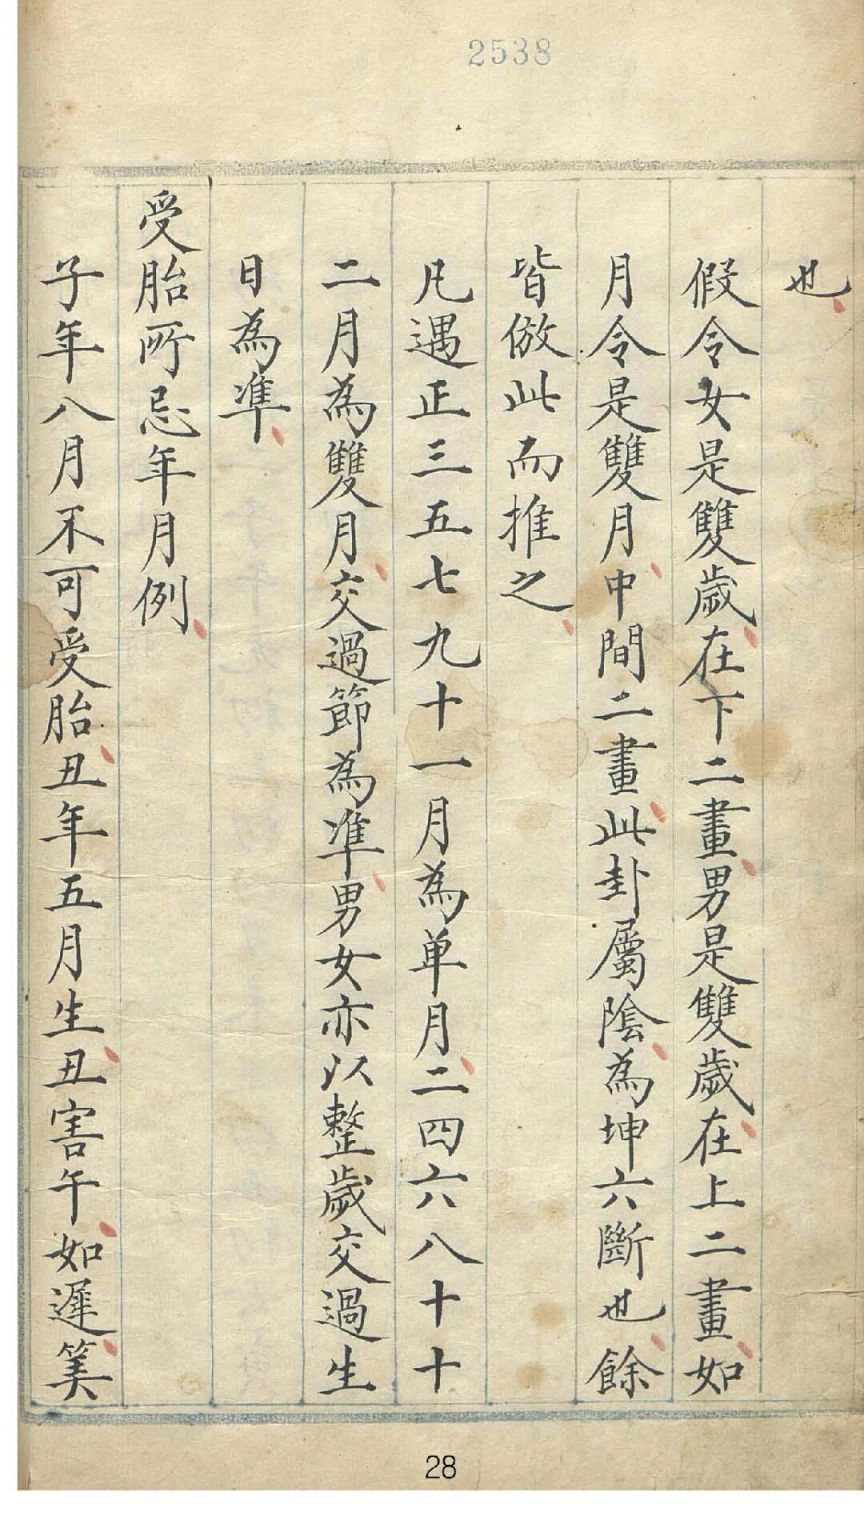 2538
也
假令女是雙歲在下二畫男是雙歲在上二畫如
月令是雙月中間二畫此卦屬陰為坤六斷也餘
皆倣此而推之
凡遇正三五七九十一月為单月二四六八十十
二月為雙月交過節為準男女亦以整歲交過生
日為準
受胎所忌年月例
子年八月不可受胎丑年五月生丑害午如遲筭
28